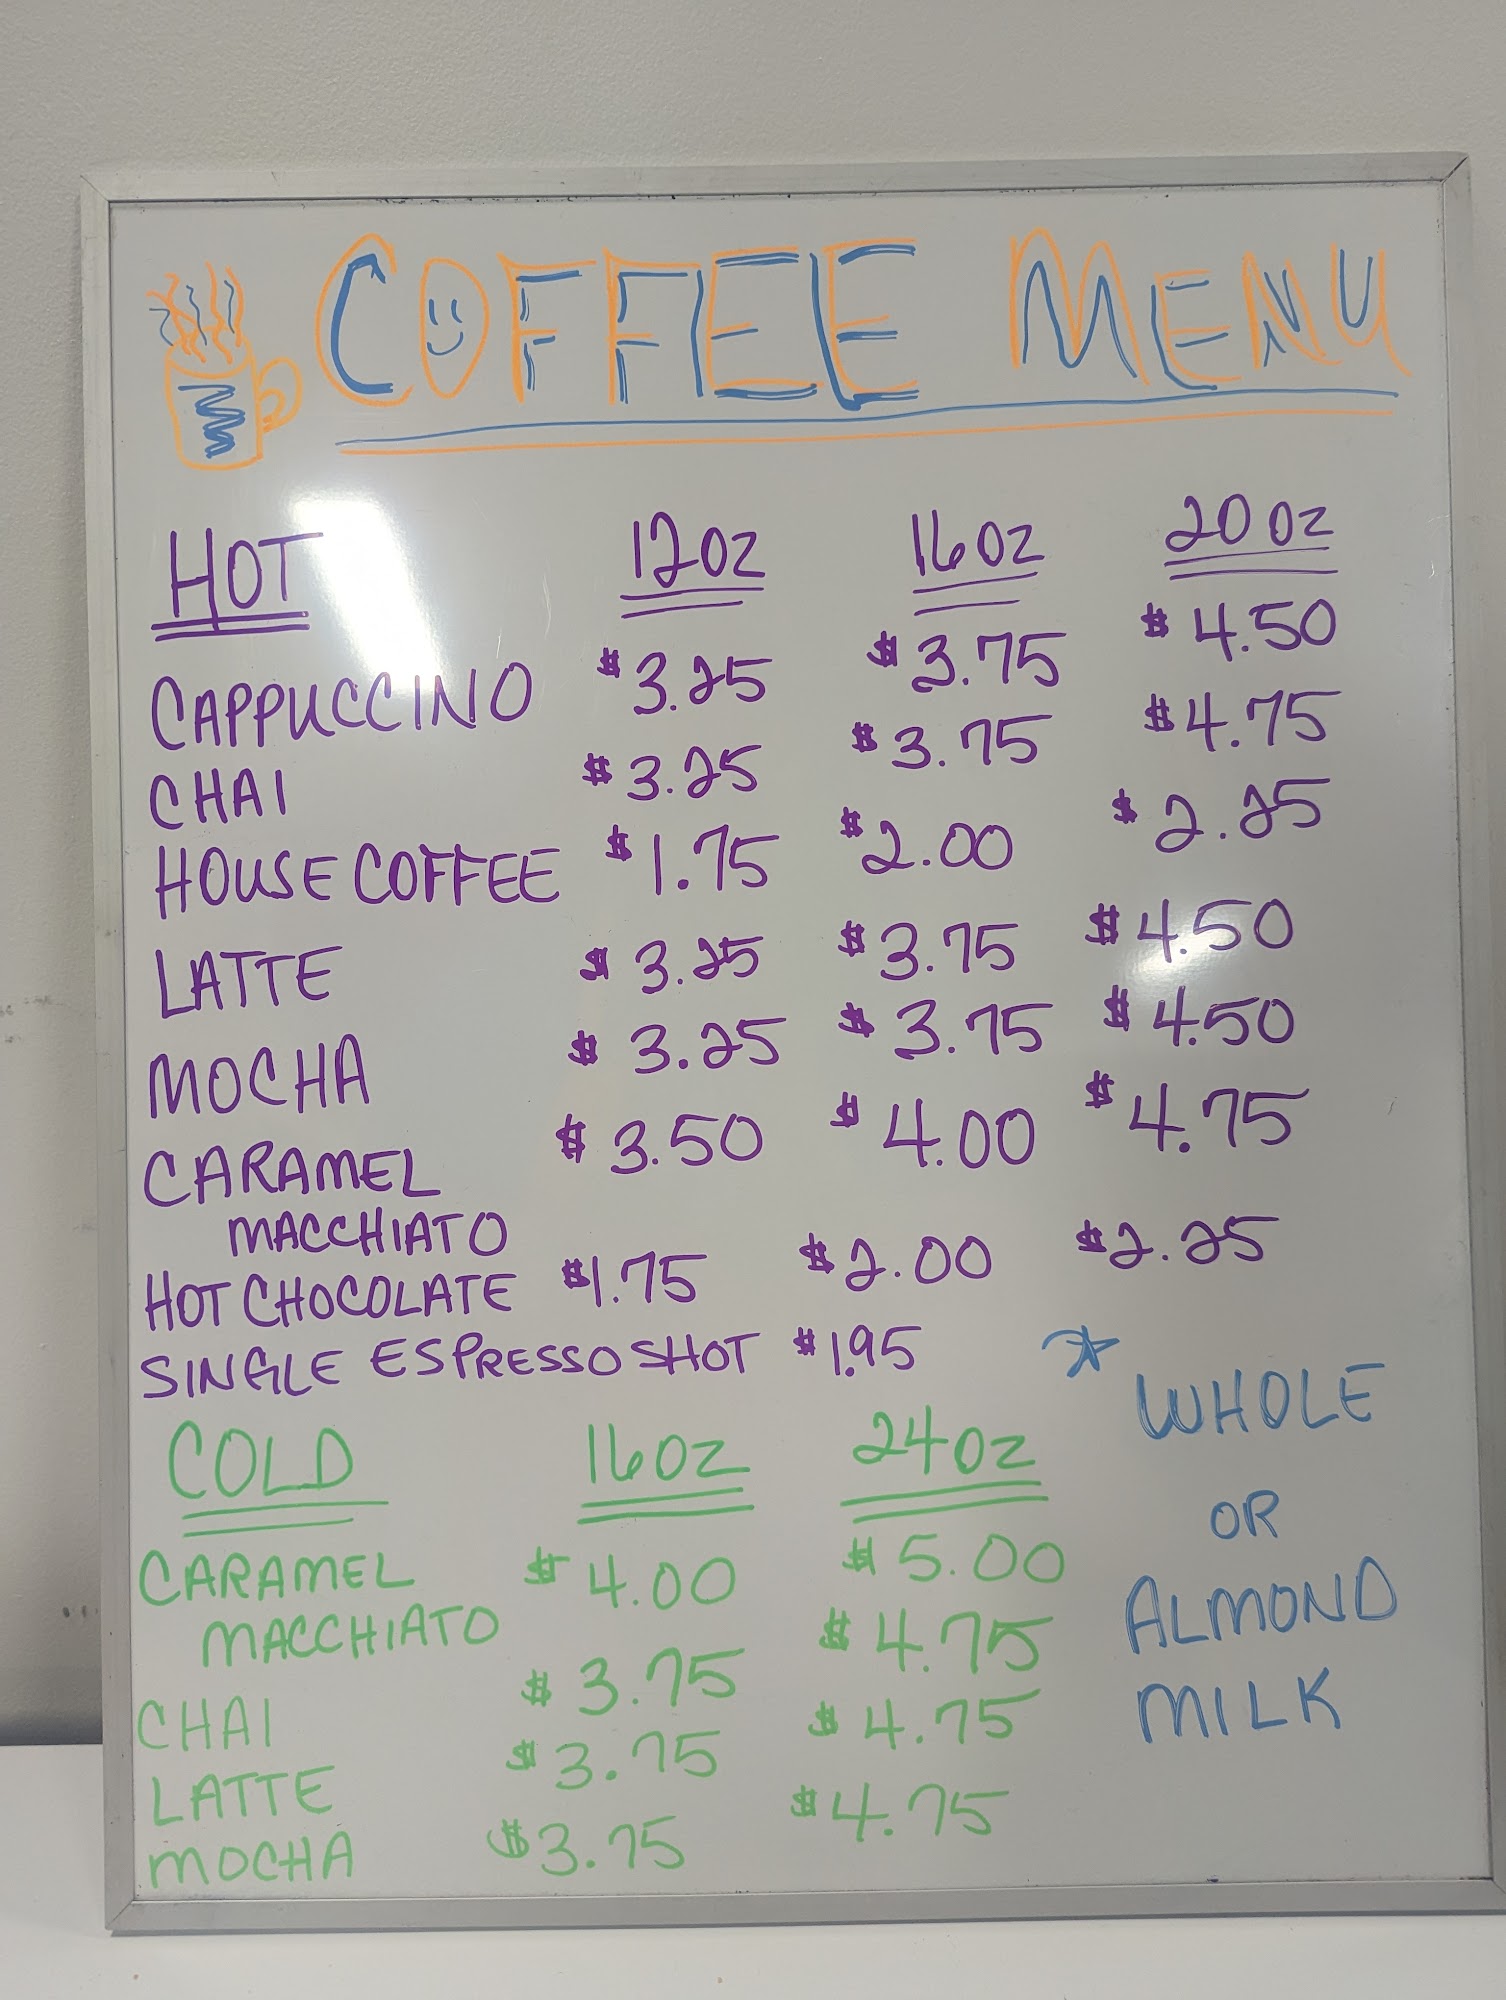 COFFEE MENU
HOT 12oz 16oz 20oz
CAPPUCCINO $3.25 $3.75 $4.50
CHAI $3.25 $3.75 $4.75
HOUSE COFFEE $1.75 $2.00 $2.25
LATTE $3.25 $3.75 $4.50
MOCHA $3.25 $3.75 $4.50
CARAMEL $3.50 $4.00 $4.75
MACCHIATO
HOT CHOCOLATE $1.75 $2.00 $2.25
SINGLE ESPRESSO SHOT $1.95
COLD 16oz 24oz
CARAMEL $4.00 $5.00
MACCHIATO
CHAI $3.75 $4.75
LATTE $3.75 $4.75
MOCHA $3.75 $4.75
WHOLE
OR
ALMOND
MILK